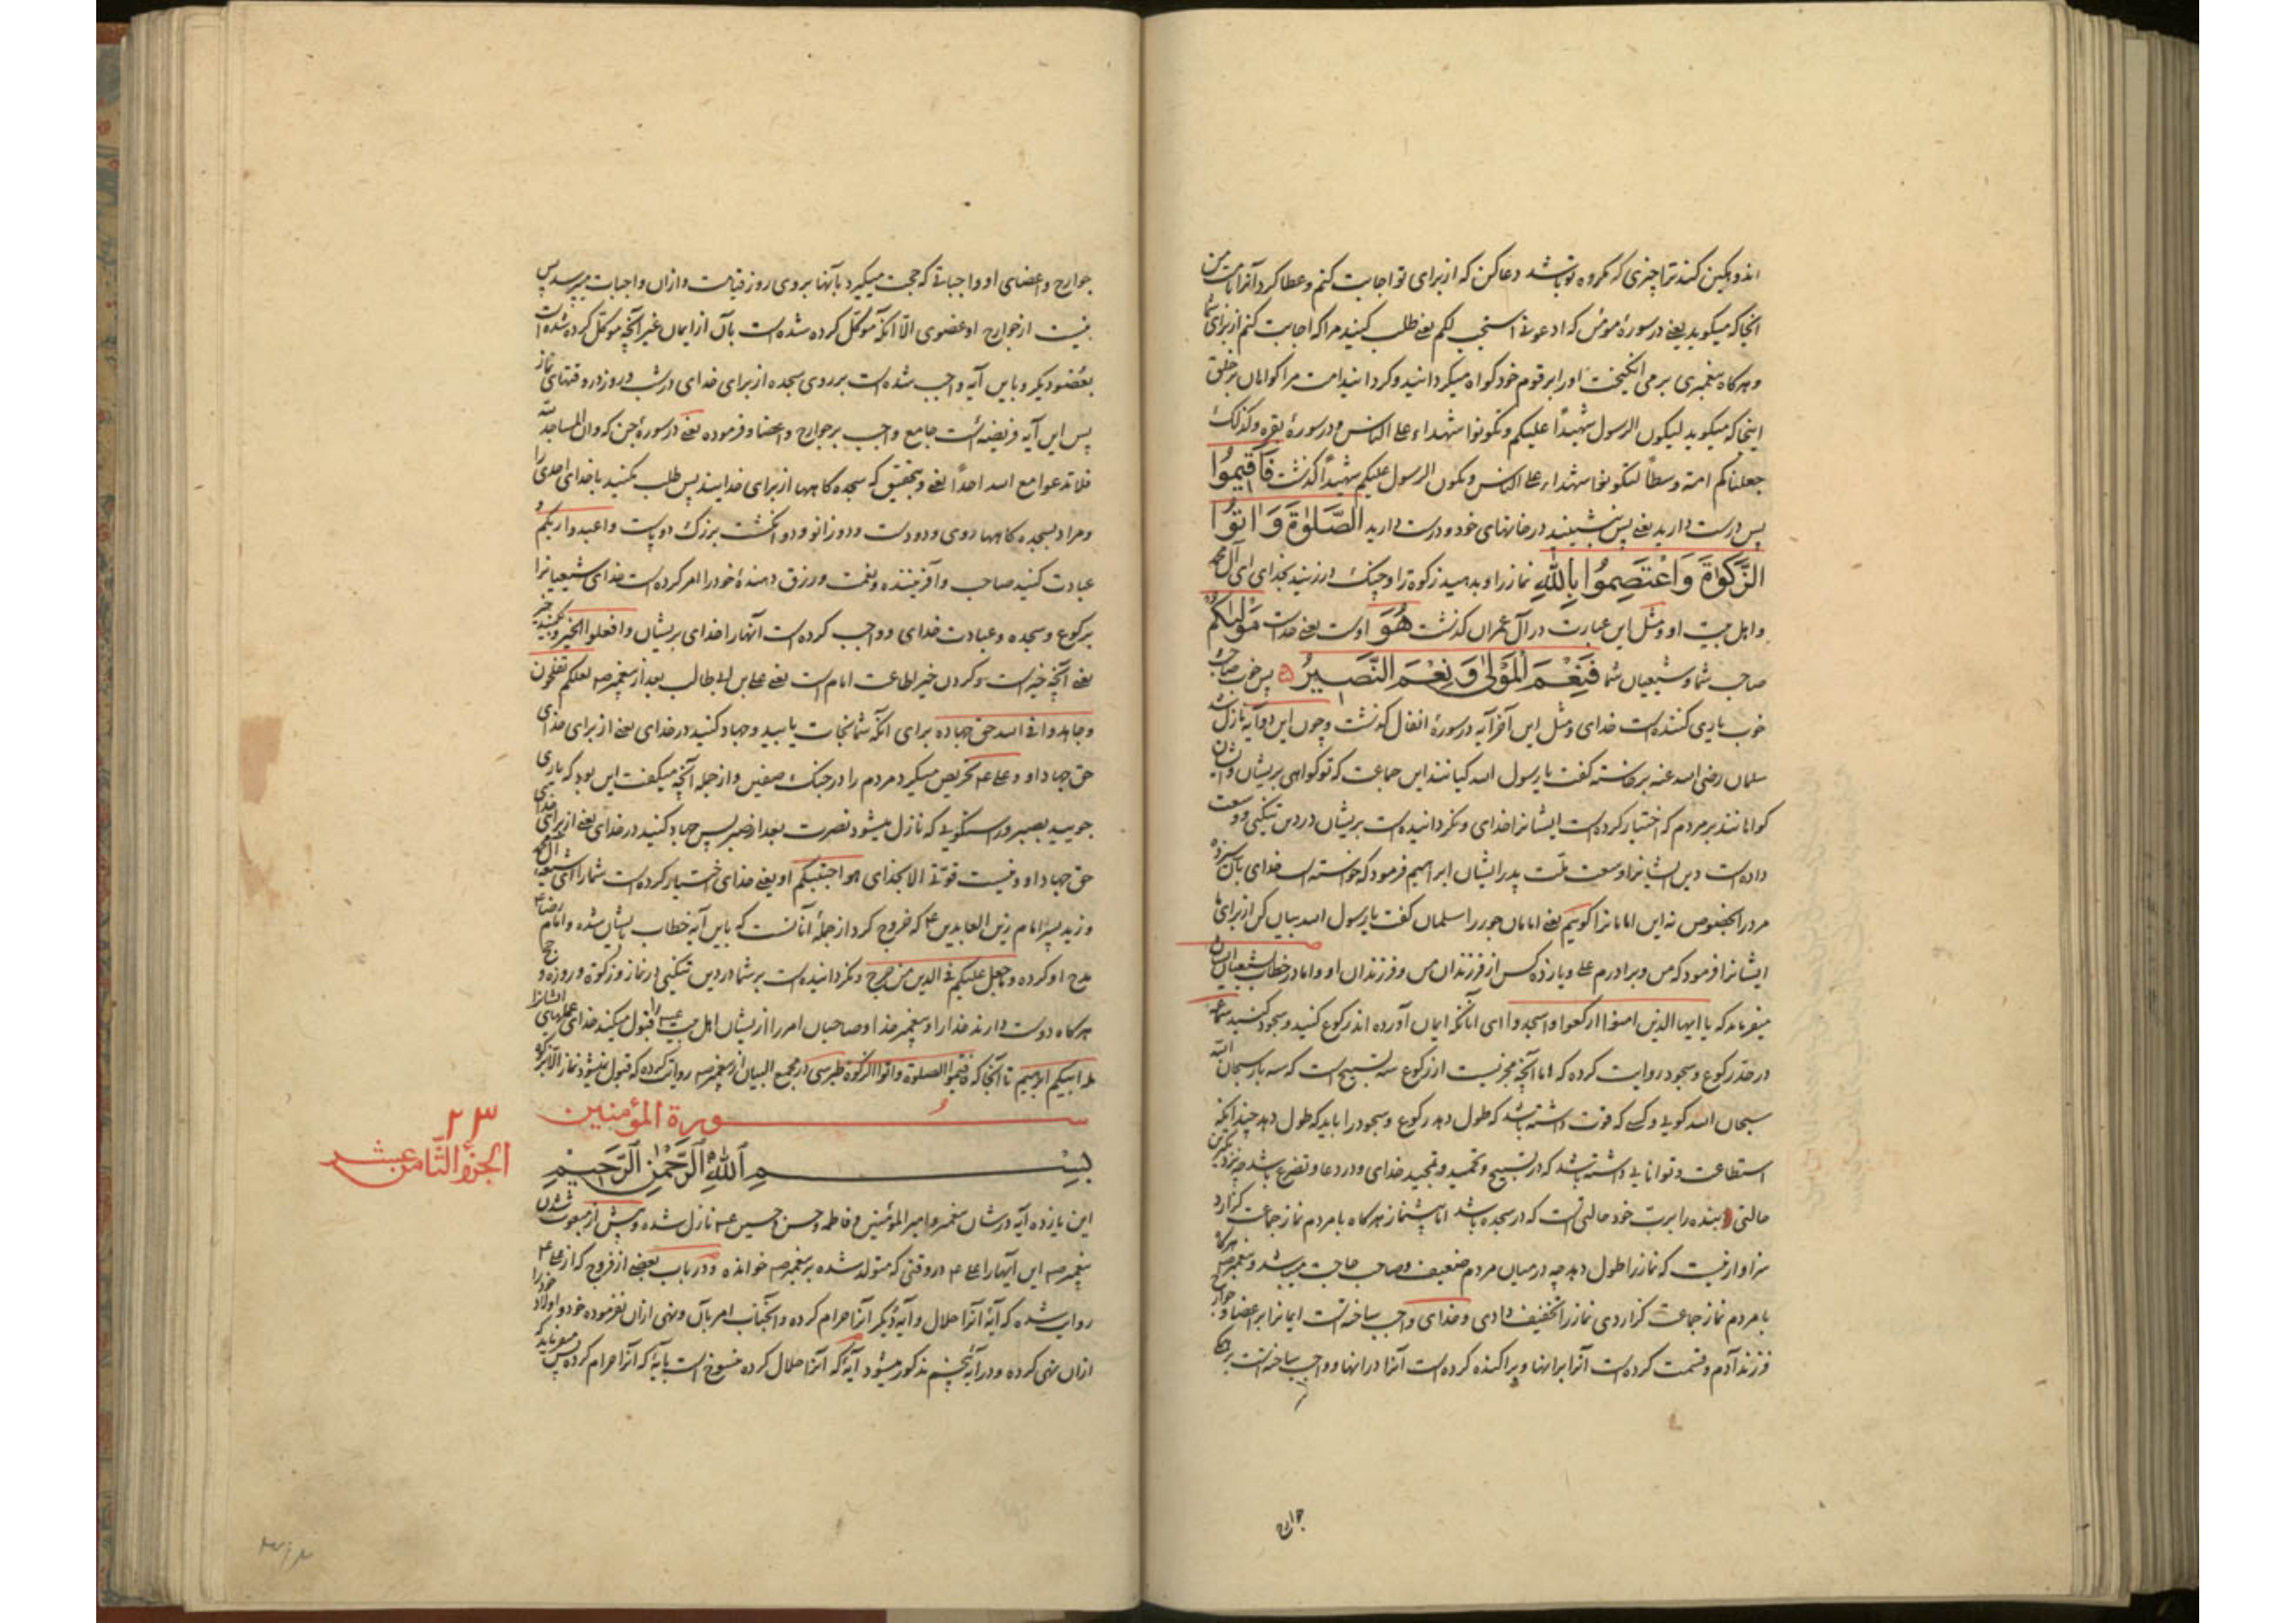 اندوهکین کند ترا چیزی که مکروه تو باشد دعا کن که از برای تو اجابت کنم و عطا کرد آنرا بامت من
انجا که میکوید یعنی در سورهٔ مؤمن که ادعونی استجب لکم یعنی طلب کنید مرا که اجابت کنم از برای شما
و هرکاه پیغمبری برمی انکیخت او را بر قوم خود کواه میکردانید و کردانید امت مرا کواهان بر خلق
اینجا که میکوید لیکون الرسول شهیداً علیکم و تکونوا شهداء علی الناس و در سورهٔ بقره و کذلک
جعلناکم امة وسطاً لتکونوا شهداء علی الناس و یکون الرسول علیکم شهیداً کذشت فَاَقیمُوا
پس درست دارید یعنی پس بنشینید در خانهای خود و درست دارید الصَّلوٰةَ وَ اٰتُوا
الزَّکوٰةَ وَ اعْتَصِمُوا بِاللّٰهِ نماز را و بدهید زکوة را و چنک درزنید بخدای ای آل محمد
و اهل بیت او و مثل این عبارت در آل عمران کذشت هُوَ اوست یعنی خداست مَوْلیٰکُم
صاحب شما و شیعیان شما فَنِعْمَ الْمَوْلیٰ وَ نِعْمَ النَّصیرُ پس خوب صاحب
خوب یاری کننده است خدای و مثل این آخر آیه در سورهٔ انفال کذشت و چون این دو آیه نازل شد
سلمان رضی الله عنه برخاسته کفت یا رسول الله کیانند این جماعت که تو کواهی بریشان و ایشان
کواهانند بر مردم که اختیار کرده است ایشانرا خدای و نکردانیده است بریشان در دین تنکی و وسعت
داده است دین ایشانرا وسعت ملت پدر ایشان ابراهیم فرمود که خواسته است خدای بآن سیزده
مرد را بخصوص نه این امامانرا کوییم یعنی امامان جور را سلمان کفت یا رسول الله بیان کن از برای ما
ایشانرا فرمود که من و برادرم علی و یازده کس از فرزندان من و فرزندان او و اما در خطاب شیعیان ایشان
میفرماید که یا ایها الذین امنوا ارکعوا و اسجدوا ای آنانکه ایمان آورده اند رکوع کنید و سجود کنید سماعه
در قدر رکوع و سجود روایت کرده که اما آنچه مجزیست از رکوع سه تسبیح است که سه بار سبحان الله
سبحان الله کوید و کسی که قوت داشته باشد که طول دهد رکوع و سجود را باید که طول دهد چندانکه
استطاعت و توانایی داشته باشد که در تسبیح و تحمید و تمجید خدای و در دعا و تضرع باشد چه نزدیکترین
حالتی بنده را برب خود حالتی است که در سجده باشد اما پیشنماز هرکاه با مردم نماز جماعت کزارد
سزاوار نیست که نماز را طول دهد چه در میان مردم ضعیف و صاحب حاجت میباشد و پیغمبر ص هرکاه
با مردم نماز جماعت کزاردی نماز را تخفیف دادی و خدای واجب ساخته است ایمانرا بر اعضا و جوارح
فرزند آدم و قسمت کرده است آنرا برانها و پراکنده کرده است آنرا در انها و واجب ساخته است بر همکی
جوارح
جوارح و اعضای او واجباتی که حجت میکیرد بآنها بروی روز قیامت و ازان واجبات میپرسد پس
نیست از جوارح او عضوی الا آنکه موکل کرده شده است بآن از ایمان غیر آنچه موکل کرده شده است
بعضو دیکر و باین آیه واجب شده است بر روی سجده از برای خدای در شب و روز در وقتهای نماز
پس این آیه فریضه است جامع واجب بر جوارح و اعضا و فرموده یعنی در سورهٔ جن که و ان المساجد لله
فلا تدعوا مع الله احداً یعنی و بتحقیق که سجده کاهها از برای خدایند پس طلب مکنید با خدای احدی را
و مراد بسجده کاهها روی و دو دست و دو زانو و دو انکشت بزرک دو پاست و اعبدوا ربکم و
عبادت کنید صاحب و آفریننده و نعمت و رزق دهندهٔ خود را امر کرده است خدای شیعیانرا
برکوع و سجده و عبادت خدای و واجب کرده است آنها را خدای بریشان و افعلوا الخیر و بکنید خیر
یعنی آنچه خیر است و کردن خیر اطاعت امام است یعنی علی بن ابی طالب بعد از پیغمبر ص لعلکم تفلحون
و جاهدوا فی الله حق جهاده برای آنکه شما نجات یابید و جهاد کنید در خدای یعنی از برای خدای
حق جهاد او و علی ع تحریص میکرد مردم را در جنک صفین و از جمله آنچه میکفت این بود که یاری
جویید بصبر و راستکویی که نازل میشود نصرت بعد از صبر پس جهاد کنید در خدای یعنی از برای خدای
حق جهاد او و نیست قوتی الا بخدای هو اجتبیکم او یعنی خدای اختیار کرده است شما را ای شیعه آل محمد
و زید پسر امام زین العابدین ع که خروج کرد از جملهٔ آنانست که باین آیه خطاب بایشان شده و امام رضا ع
مدح او کرده و ما جعل علیکم فی الدین من حرج و نکردانیده است بر شما در دین تنکی در نماز و زکوة و روزه و حج
هرکاه دوست دارند خدا را و پیغمبر خدا و صاحبان امر را ازیشان اهل بیت قبول میکند خدای عملهای ایشانرا
ملة ابیکم ابرهیم تا آنجا که فاقیموا الصلوة و اتوا الزکوة طبرسی در مجمع البیان از پیغمبر ص روایت کرده که قبول نمیشود نماز الا بزکوة
سورة المؤمنین
٢٣
الجزو الثّامن عشر
بِسْمِ اللّٰهِ الرَّحْمٰنِ الرَّحیمِ
این یازده آیه در شان پیغمبر و امیر المؤمنین و فاطمه و حسن و حسین ع نازل شده و پیش از مبعوث شدن
پیغمبر ص این آیها را علی ع در وقتی که متولد شده بر پیغمبر ص خوانده و در باب بعضی از فروج که از علی ع
روایت شده که آیهٔ آنرا حلال و آیهٔ دیکر آنرا حرام کرده و آنجناب امر بآن و نهی ازان نفرموده خود و اولاد خود را
ازان نهی کرده و در آیهٔ پنجم مذکور میشود آیهٔ که آنرا حلال کرده منسوخ است بآیهٔ که آنرا حرام کرده پس میفرماید که